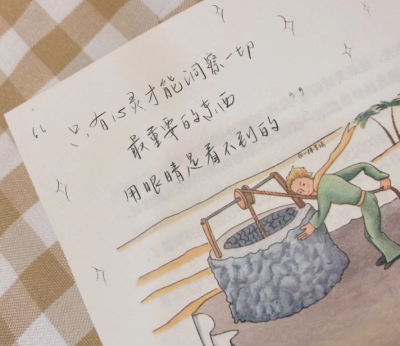 “只有心灵才能洞察一切
最重要的东西
用眼睛是看不到的”